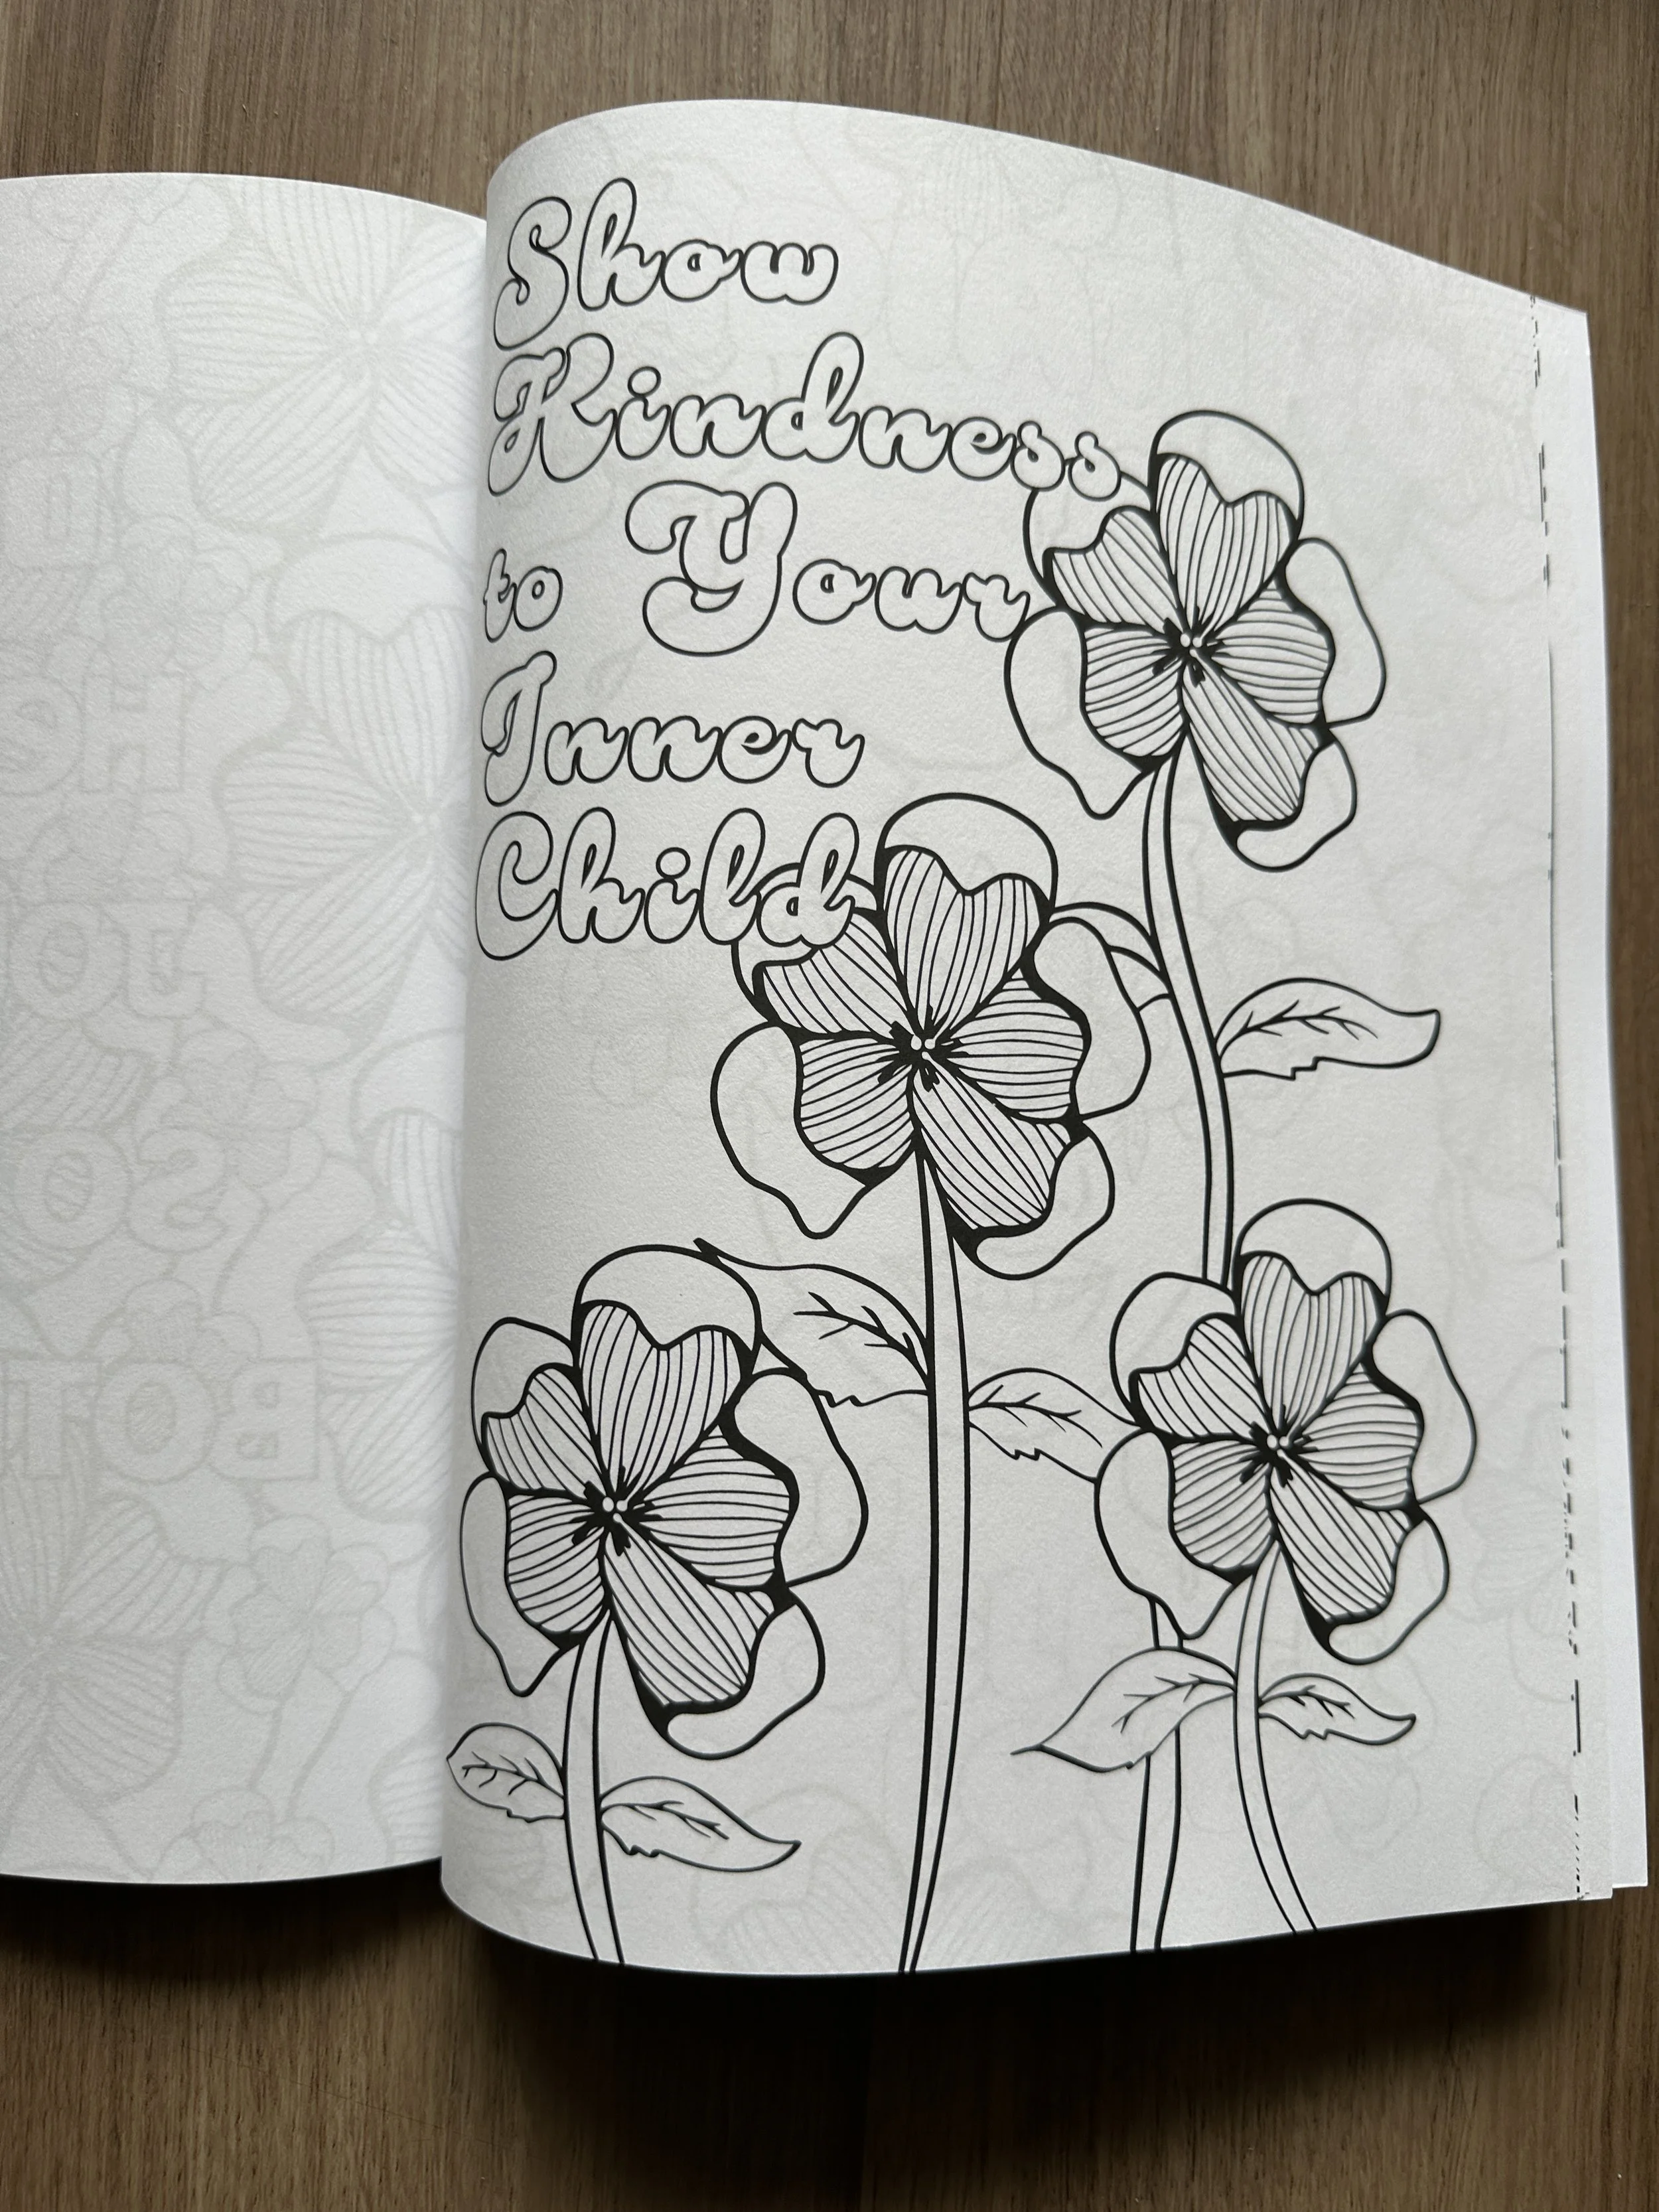 Show
Kindness
to Your
Inner
Child